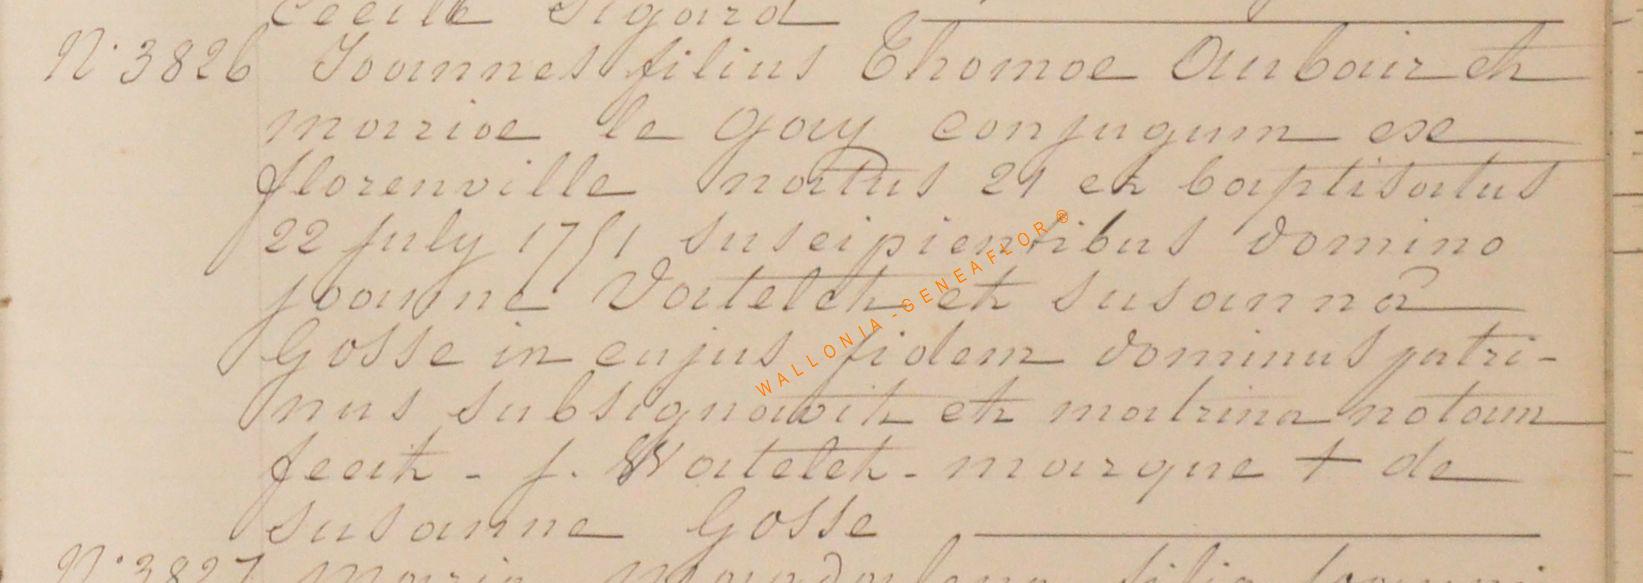 Cecile Sigard
N° 3826 Joannes filius Thomoe Aubair et
marioe le gay conjugum ex
florenville natus 21 et baptisatus
22 july 1751 suscipientibus domino
joanne Vatelet et susannâ
Gosse in cujus fidem dominus patri-
nus subsignavit et matrina notam
fecit - j. Watelet - marque + de
susanne Gosse
N° 3827 Maria filia
WALLONIA - GENEAFLOR ®